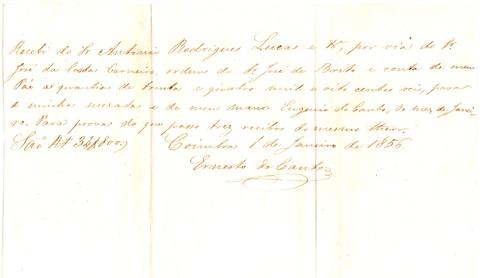 Recebi do Sr Antonio Rodrigues Lucas e Ca, por via do Sr
José da Costa Carneiro, ordem de Sr José de Brito e conta de meu
Pae a quantia de trinta e quatro mil e oito centos reis, para
a minha mezada e de meu mano Eugenio do Canto, do mez de Janei-
ro. Para prova do que passo trez recibos do mesmo theor.
São Rs 34$800
Coimbra 1 de Janeiro de 1856
Ernesto do Canto